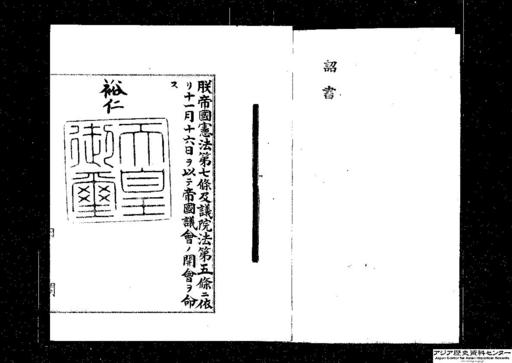 詔書
朕帝國憲法第七條及議院法第五條ニ依
リ十一月十六日ヲ以テ帝國議會ノ開會ヲ命
ス
裕仁
天皇
御璽
アジア歴史資料センター
Japan Center for Asian Historical Records